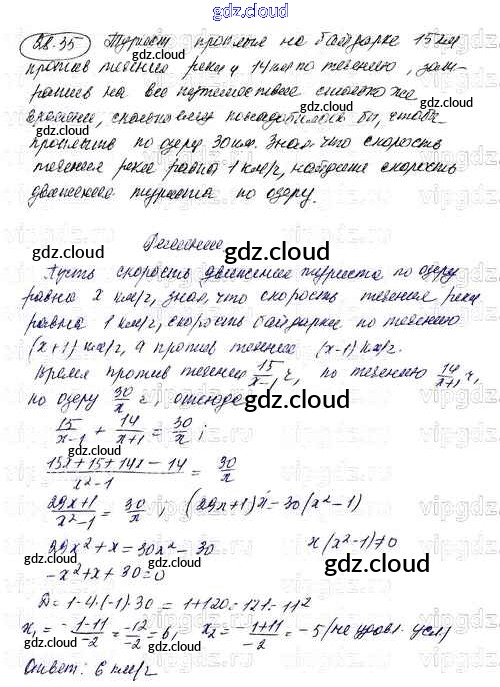 gdz.cloud
28.35 Турист проплыл на байдарке 15 км
против течения реки и 14 км по течению, зат-
ратив на все путешествие столько же
времени, сколько ему понадобилось бы, чтобы
проплыть по озеру 30 км. Зная, что скорость
течения реки равна 1 км/ч, найдите скорость
движения туриста по озеру.
Решение
Пусть скорость движения туриста по озеру
равна x км/ч, зная, что скорость течения реки
равна 1 км/ч, скорость байдарки по течению
(x+1) км/ч, а против течения (x-1) км/ч.
Время против течения 15/(x-1) ч, по течению 14/(x+1) ч,
по озеру 30/x ч, отсюда
15/(x-1) + 14/(x+1) = 30/x ;
(15x+15+14x-14)/(x²-1) = 30/x
(29x+1)/(x²-1) = 30/x ; (29x+1)x = 30(x²-1)
29x²+x = 30x²-30 x(x²-1)≠0
-x²+x+30=0
D = 1-4·(-1)·30 = 1+120=121=11²
x₁ = (-1-11)/(-2) = (-12)/(-2) = 6, x₂ = (-1+11)/(-2) = -5 (не удовл. усл.)
Ответ: 6 км/ч